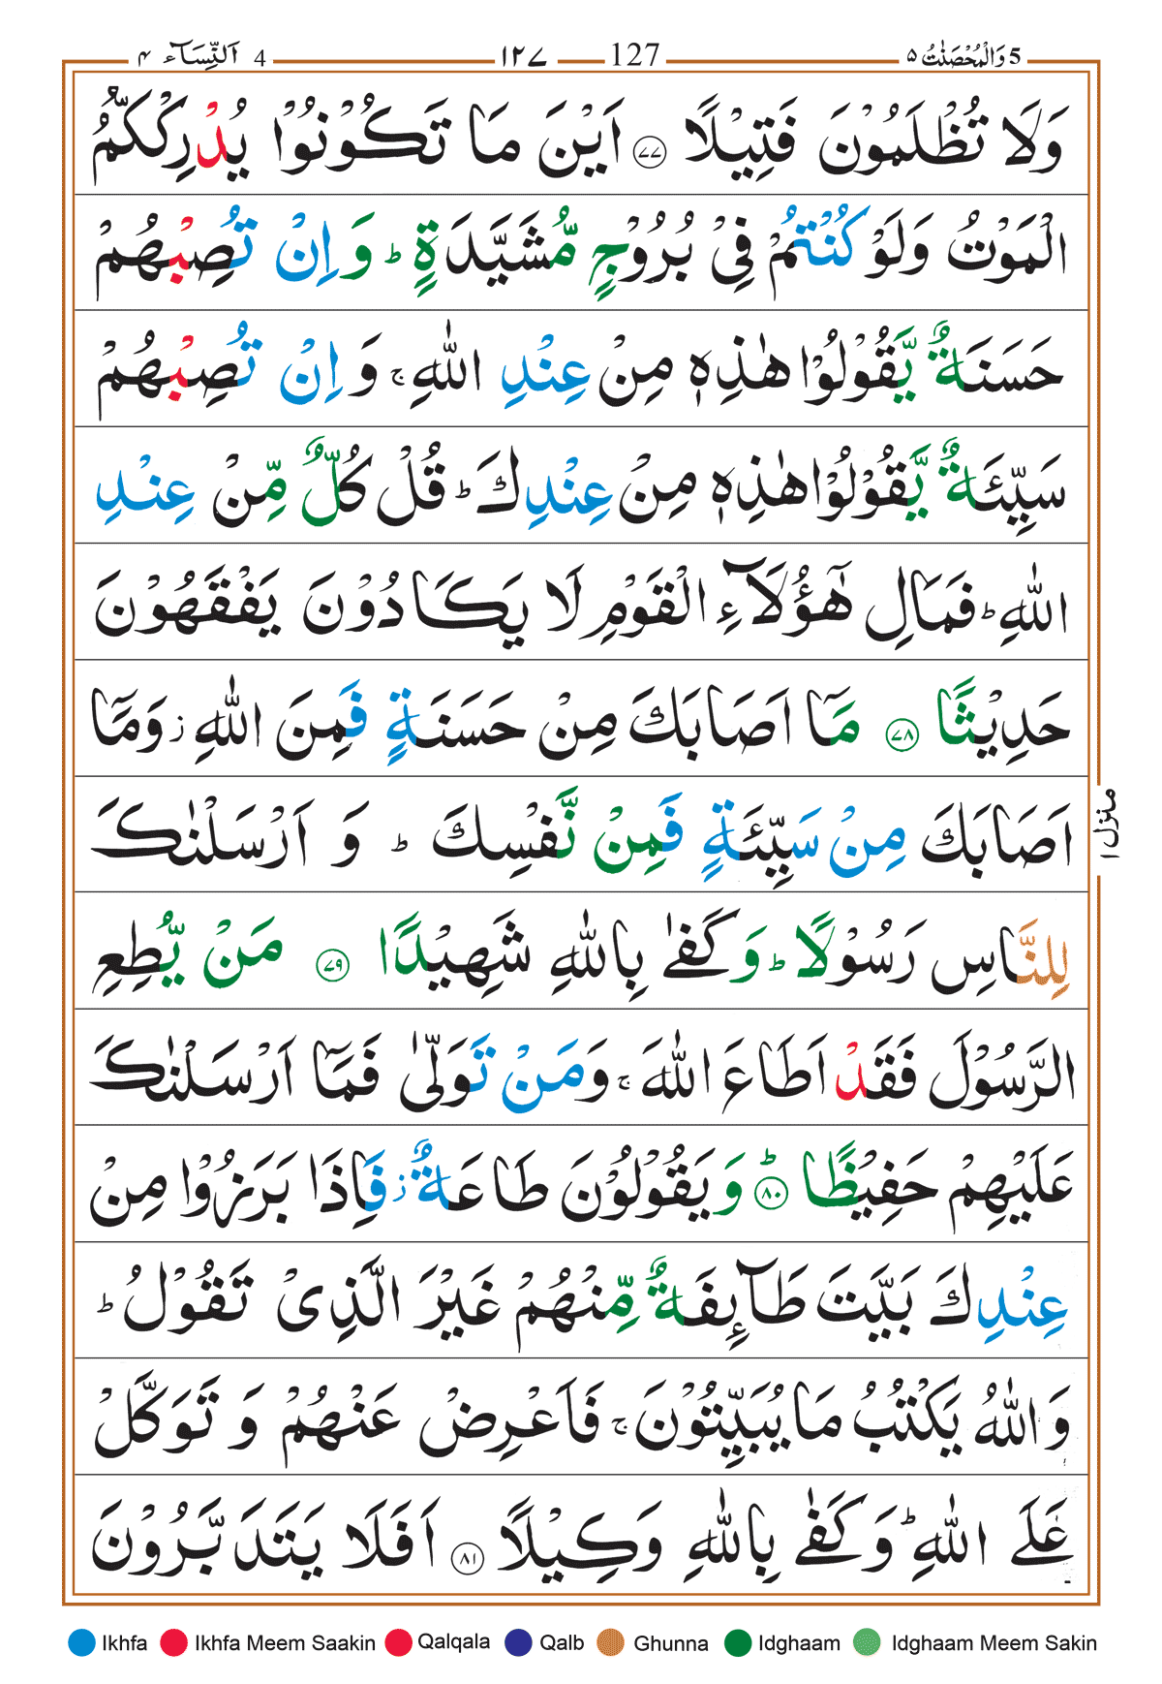 5 وَالْمُحْصَنٰتُ ۵ 127 ١٢٧ 4 اَلنِّسَآء ۴
وَلَا تُظْلَمُوْنَ فَتِيْلًا ﴿۷۷﴾ اَيْنَ مَا تَكُوْنُوْا يُدْرِكْكُّمُ
الْمَوْتُ وَلَوْ كُنْتُمْ فِىْ بُرُوْجٍ مُّشَيَّدَةٍ ؕ وَاِنْ تُصِبْهُمْ
حَسَنَةٌ يَّقُوْلُوْا هٰذِهٖ مِنْ عِنْدِ اللّٰهِ ۚ وَاِنْ تُصِبْهُمْ
سَيِّئَةٌ يَّقُوْلُوْا هٰذِهٖ مِنْ عِنْدِكَ ؕ قُلْ كُلٌّ مِّنْ عِنْدِ
اللّٰهِ ؕ فَمَالِ هٰٓؤُلَآءِ الْقَوْمِ لَا يَكَادُوْنَ يَفْقَهُوْنَ
حَدِيْثًا ﴿۷۸﴾ مَاۤ اَصَابَكَ مِنْ حَسَنَةٍ فَمِنَ اللّٰهِ ۫ وَمَاۤ
اَصَابَكَ مِنْ سَيِّئَةٍ فَمِنْ نَّفْسِكَ ؕ وَ اَرْسَلْنٰكَ
لِلنَّاسِ رَسُوْلًا ؕ وَكَفٰى بِاللّٰهِ شَهِيْدًا ﴿۷۹﴾ مَنْ يُّطِعِ
الرَّسُوْلَ فَقَدْ اَطَاعَ اللّٰهَ ۚ وَمَنْ تَوَلّٰى فَمَاۤ اَرْسَلْنٰكَ
عَلَيْهِمْ حَفِيْظًا ﴿ؕ۸۰﴾ وَيَقُوْلُوْنَ طَاعَةٌ ۫ فَاِذَا بَرَزُوْا مِنْ
عِنْدِكَ بَيَّتَ طَآٮِٕفَةٌ مِّنْهُمْ غَيْرَ الَّذِىْ تَقُوْلُ ؕ
وَاللّٰهُ يَكْتُبُ مَا يُبَيِّتُوْنَ ۚ فَاَعْرِضْ عَنْهُمْ وَ تَوَكَّلْ
عَلَى اللّٰهِ ؕ وَكَفٰى بِاللّٰهِ وَكِيْلًا ﴿۸۱﴾ اَفَلَا يَتَدَبَّرُوْنَ
منزل ١
Ikhfa Ikhfa Meem Saakin Qalqala Qalb Ghunna Idghaam Idghaam Meem Sakin